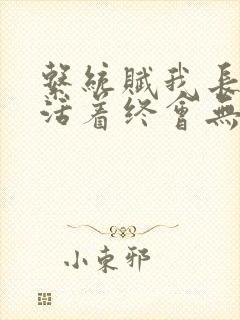 繫統賦我長
活着终會無
小東邪